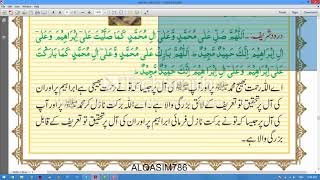 درود شریف۔ اَللّٰهُمَّ صَلِّ عَلٰى مُحَمَّدٍ وَّعَلٰى اٰلِ مُحَمَّدٍ كَمَا صَلَّيْتَ عَلٰى اِبْرَاهِيْمَ
وَعَلٰى اٰلِ اِبْرَاهِيْمَ اِنَّكَ حَمِيْدٌ مَّجِيْدٌ اَللّٰهُمَّ بَارِكْ عَلٰى مُحَمَّدٍ وَّعَلٰى اٰلِ مُحَمَّدٍ كَمَا بَارَكْتَ
عَلٰى اِبْرَاهِيْمَ وَعَلٰى اٰلِ اِبْرَاهِيْمَ اِنَّكَ حَمِيْدٌ مَّجِيْدٌ
اے اللہ رحمت بھیج محمد ﷺ پر اور آپ ﷺ کی آل پر جیسا کہ تو نے رحمت بھیجی ہے ابراہیم پر اور ان
کی آل پر تحقیق تو تعریف کے لائق بزرگی والا ہے۔ اے اللہ برکت نازل کر محمد ﷺ پر اور آپ
کی آل پر جیسا کہ تو نے برکت نازل فرمائی ابراہیم پر اور ان کی آل پر تحقیق تو تعریف کے قابل
بزرگی والا ہے۔
ALQASIM786